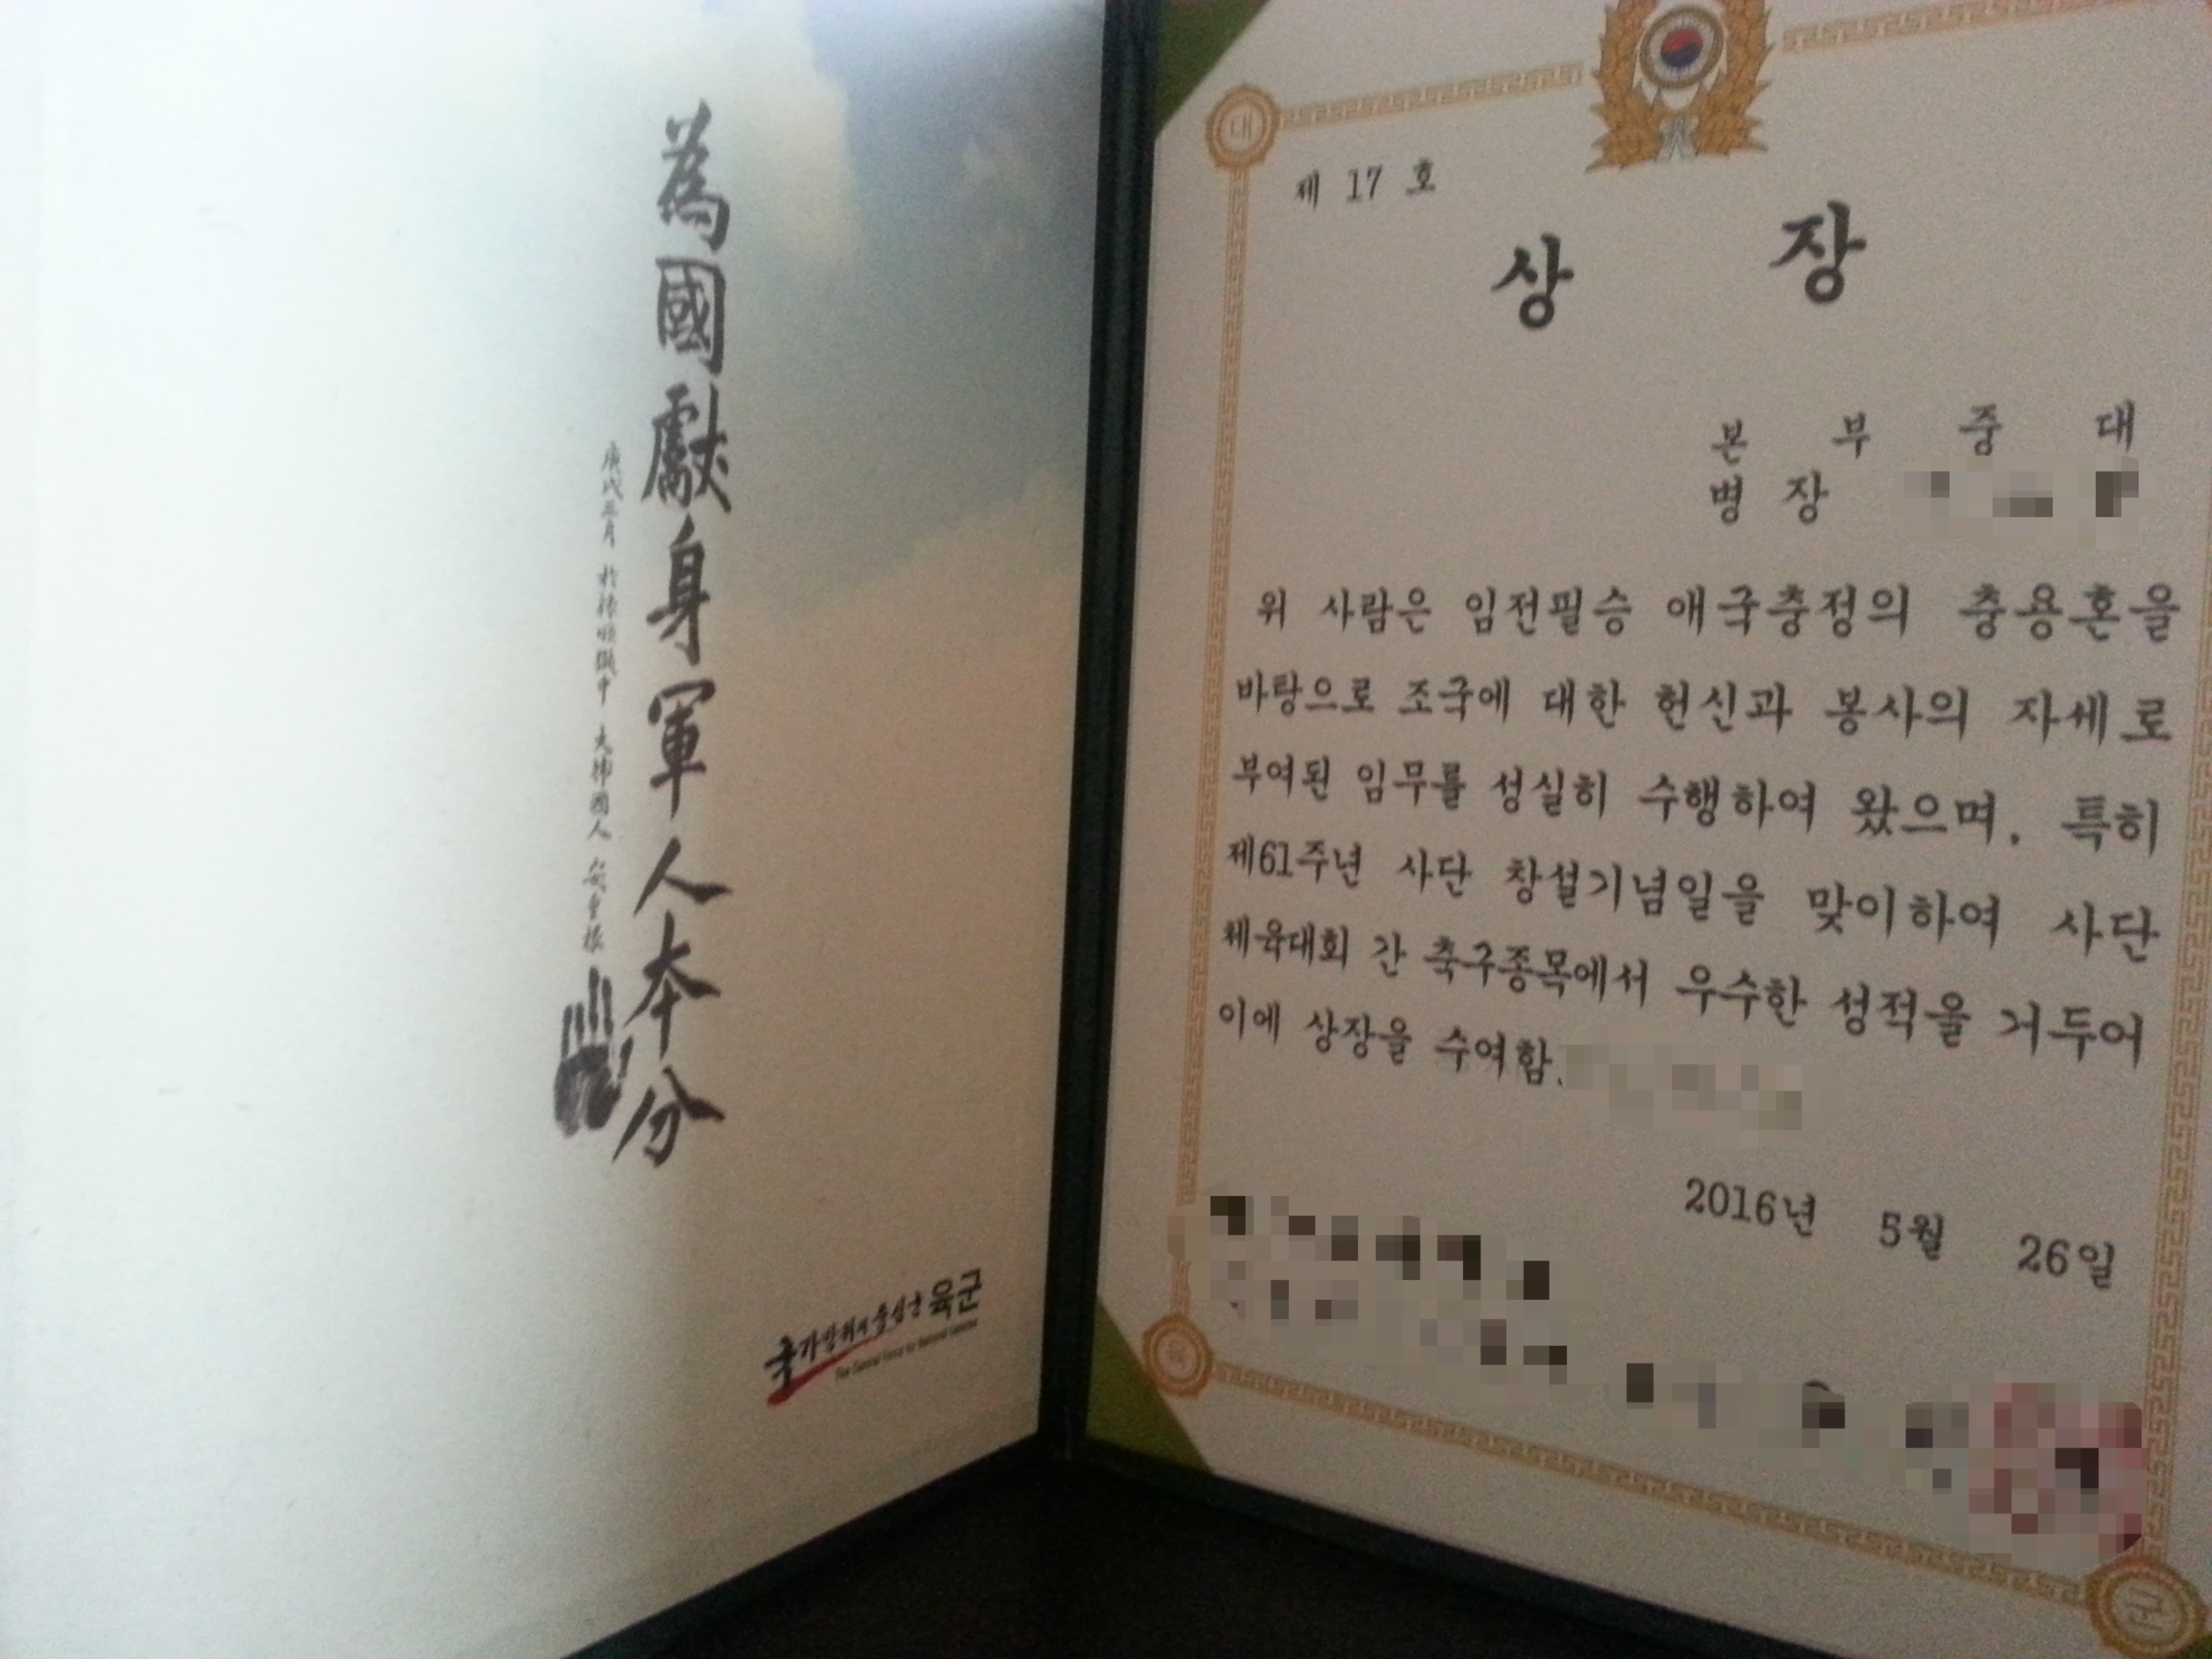 為國獻身軍人本分
庚戌三月 於旅順獄中 大韓國人 安重根
국가방위의 중심군 육군
The Central Force for National Defense
대
제 17 호
상 장
본 부 중 대
병 장
위 사람은 임전필승 애국충정의 충용혼을
바탕으로 조국에 대한 헌신과 봉사의 자세로
부여된 임무를 성실히 수행하여 왔으며, 특히
제61주년 사단 창설기념일을 맞이하여 사단
체육대회 간 축구종목에서 우수한 성적을 거두어
이에 상장을 수여함.
2016년 5월 26일
육
군